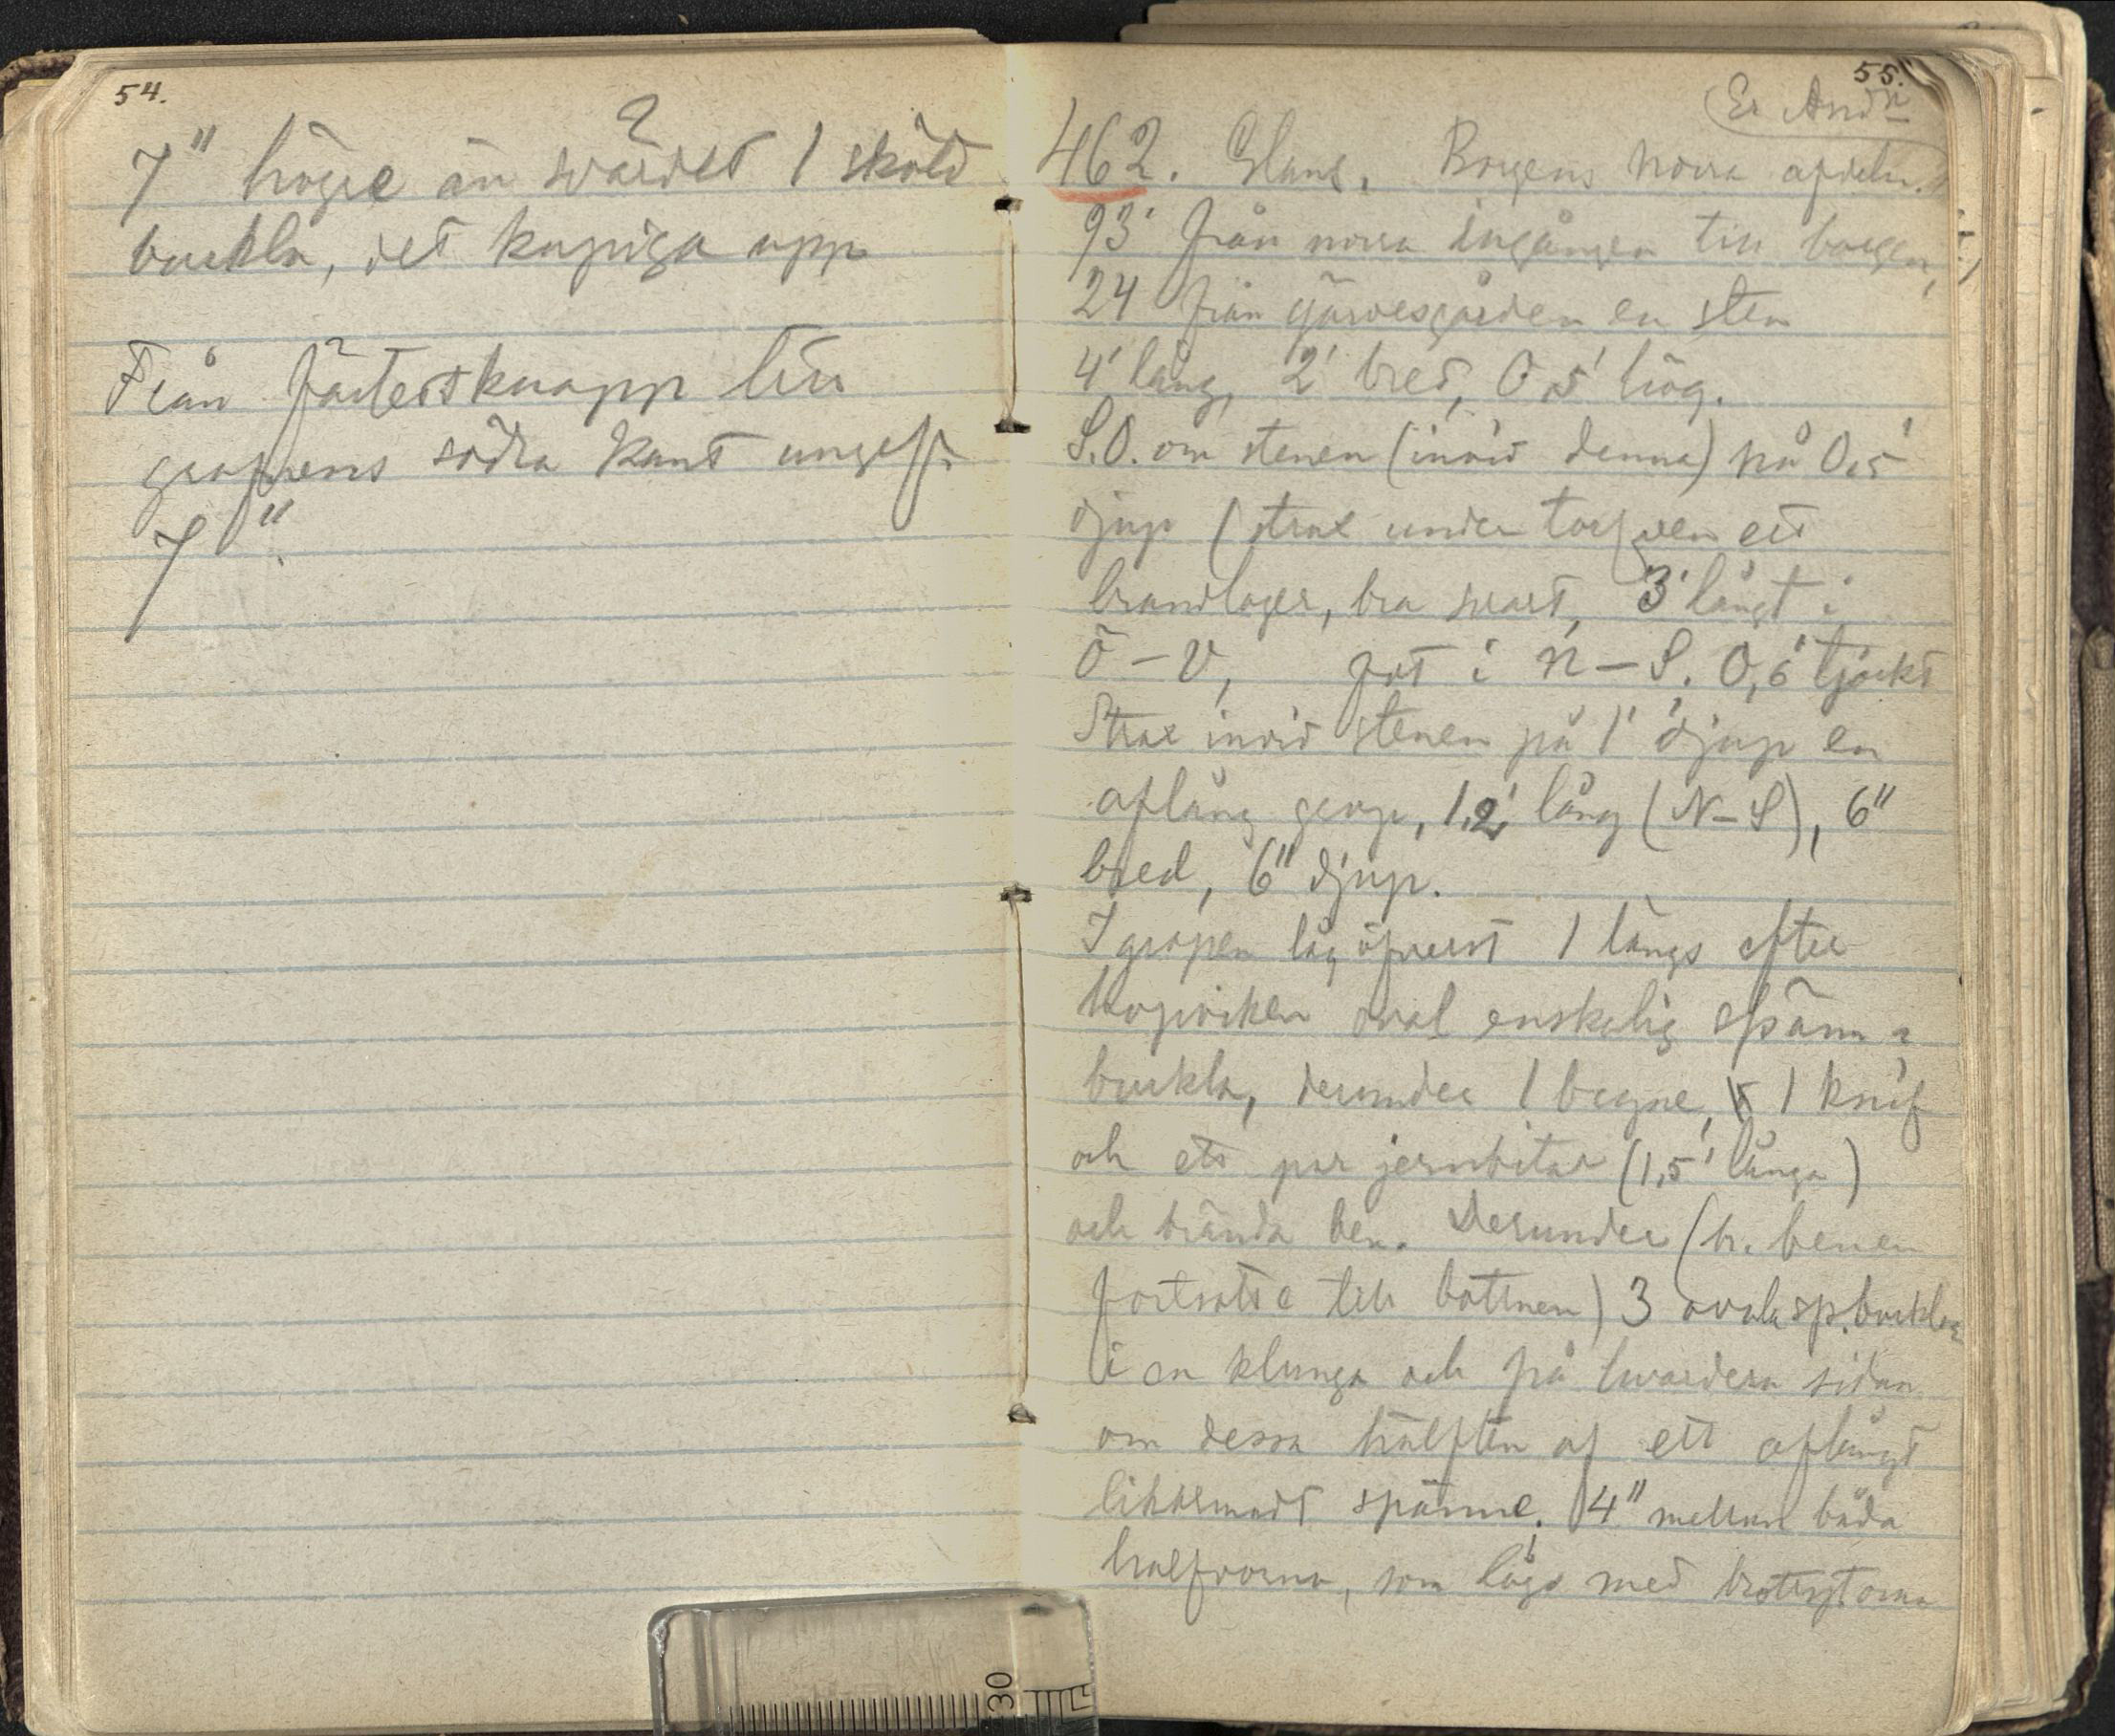 54.
7" högre än svärdet 1 sköld
?
buckla, det kupiga upp
Från fästets knapp till
gropens södra kant ungef.
7"
55.
(Er And
462. Hans. Borgens norra afdeln.
93' från norra ingången till borgen,
24 från gärdesgården en sten
4' lång, 2' bred, 0,5' hög.
S.O. om stenen (invid denna) på 0,5'
djup (strax under torfven ett
brandlager, bra svart, 3' långt i
Ö – V, fot i N – S. 0,6' tjockt
Strax invid stenen på 1' djup en
aflång grop, 1,2' lång (N – S), 6"
bred, 6" djup.
I gropen låg öfverst 1 längs efter
oval enskalig spänn-
buckla, derunder 1 bryne, 1 knif
och ett par jernbitar (1,5' långa)
och brända ben. Derunder (br. benen
fortsatte till bottnen) 3 ovala sp.bucklor
i en klunga och på hvardera sidan
om dessa hälften af ett aflångt
likarmadt spänne. 4" mellan båda
halfvorna, som lågo med brottytorna